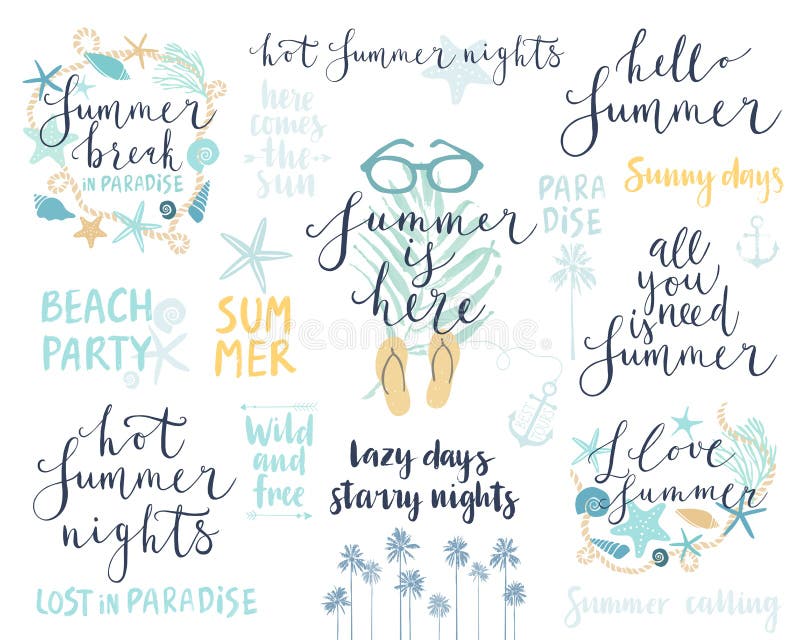 hot Summer nights
hello
Summer
Summer
break
IN PARADISE
here
comes
the
sun
PARA
DISE
Sunny days
Summer
is
here
all
you
need
is
Summer
BEACH
PARTY
SUM
MER
BEST
TOURS
hot
Summer
nights
Wild
and
free
lazy days
starry nights
I love
Summer
LOST IN PARADISE
Summer calling
dreamstime